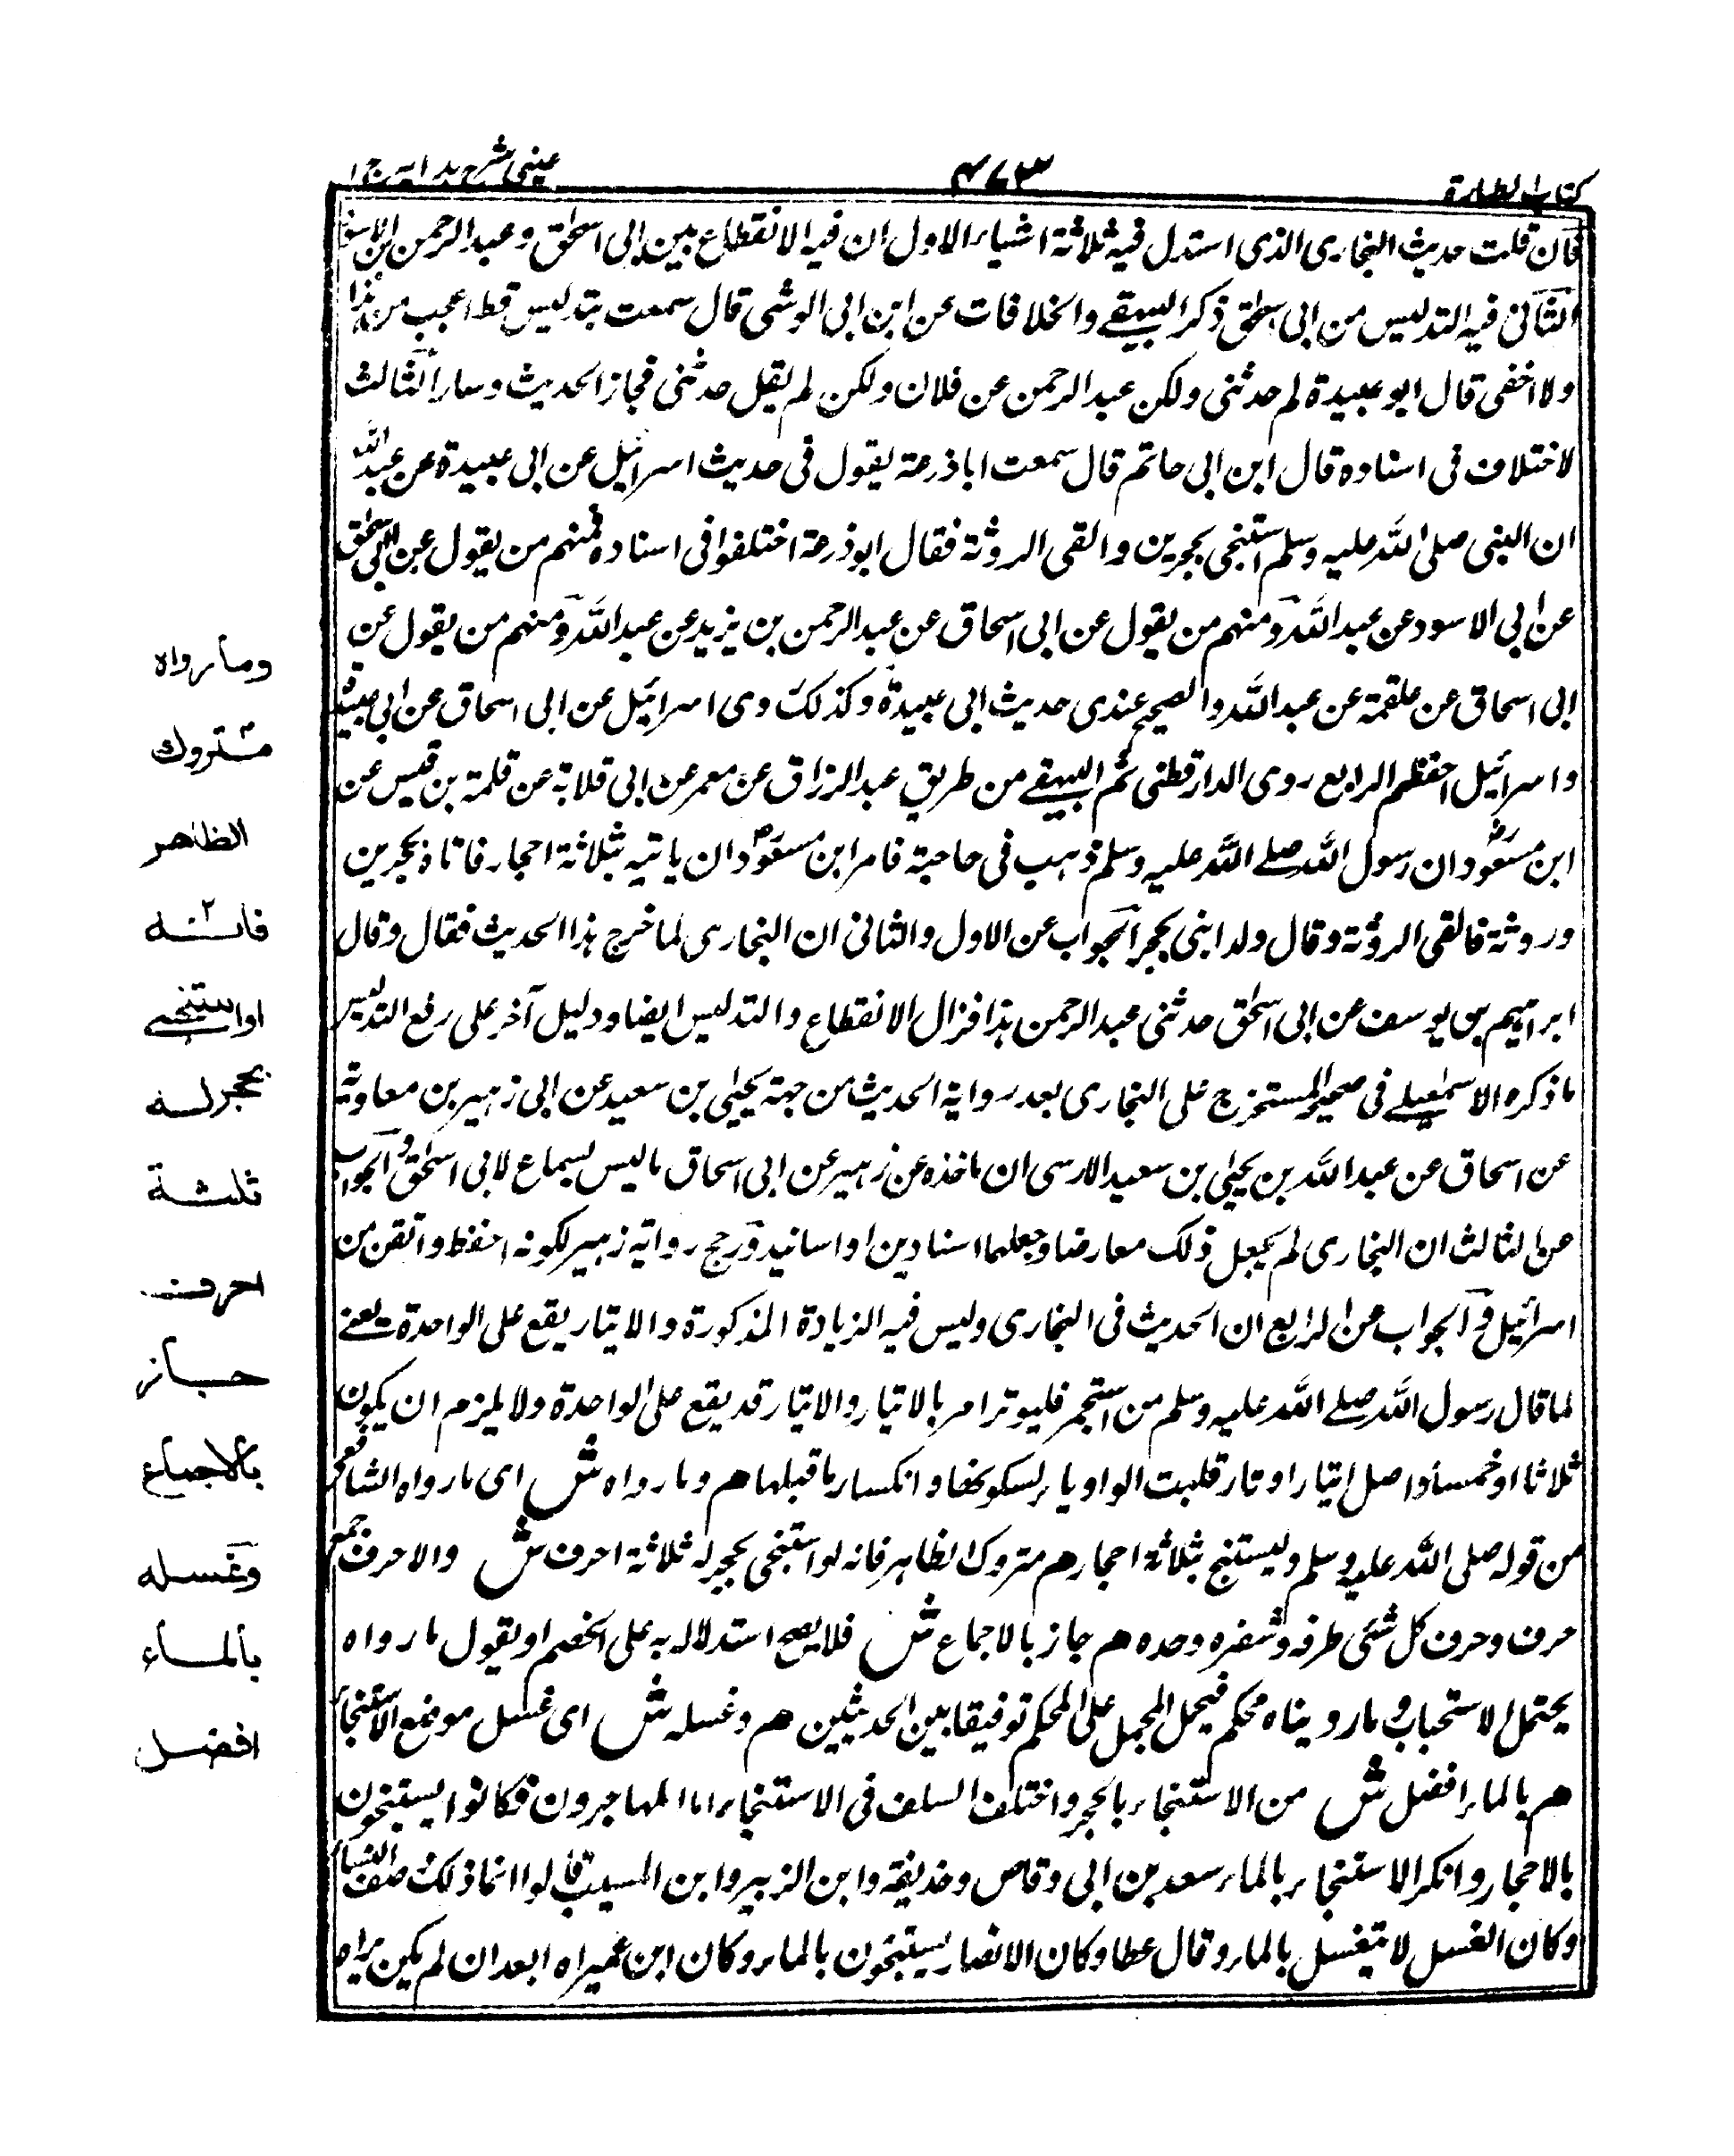 كتاب الطهارة
٤٧٣
عيني شرح هدايه ج ا
فان قلت حديث البخارى الذى استدل فيه ثلاثة اشياء الاول ان فيه الانقطاع بين ابى اسحٰق وعبد الرحمن بن الاسود
الثانى فيه التدليس من ابى اسحٰق ذكر البيهقے والخلافات عن ابن ابى الوشى قال سمعت بتدليس قط اعجب من هذا
ولا اخفى قال ابو عبيدة لم حدثنى ولكن عبد الرحمن عن فلان ولكن لم يقل حدثنى فجاز الحديث وسار الثالث
لاختلاف فى اسناده قال ابن ابى حاتم قال سمعت اباذرعة يقول فى حديث اسرائيل عن ابى عبيدة عن عبد الله
ان النبى صلى الله عليه وسلم استنجى بحجرين والقى الروثة فقال ابوذرعة اختلفوا فى اسناده فمنهم من يقول عن ابى اسحٰق
عن ابى الاسود عن عبد الله ومنهم من يقول عن ابى اسحاق عن عبد الرحمن بن يزيد عن عبد الله ومنهم من يقول عن
ابى اسحاق عن علقمة عن عبد الله والصحيح عندى حديث ابى عبيدة وكذلك روى اسرائيل عن ابى اسحاق عن ابى عبيدة
واسرائيل احفظهم الرابع روى الدارقطنى ثم البيهقے من طريق عبد الرزاق عن معمر عن ابى قلابة عن قلمة بن قيس عن
ابن مسعودؓ ان رسول الله صلے الله عليه وسلم ذهب فى حاجبة فامر ابن مسعودؓ ان ياتيه بثلاثة احجار فاتاه بحجرين
وروثة فالقى الروثة وقال ولد ابنى بحجر الجواب عن الاول والثانى ان البخارى لما خرج هذا الحديث فقال وقال
ابراهيم بن يوسف عن ابى اسحٰق حدثنى عبد الرحمن بذا فزال الانقطاع والتدليس ايضا ودليل آخر على رفع التدليس
ما ذكره الاسمٰعيلے فى صحيحه المستخرج على البخارى بعد رواية الحديث من جهة يحيٰى بن سعيد عن ابى زهير بن معاوية
عن اسحاق عن عبد الله بن يحيٰى بن سعيد الارسى ان ماخذه عن زهير عن ابى اسحاق ما ليس بسماع لابى اسحٰق والجواب
عن الثالث ان البخارى لم يجعل ذلك معارضا وجعلهما اسنادين او اسانيد ورجح رواية زهير لكونه احفظ واتقن من
اسرائيل والجواب عن الرابع ان الحديث فى البخارى وليس فيه الزيادة المذكورة والايتار يقع على الواحدة يعنے
لما قال رسول الله صلے الله عليه وسلم من استجمر فليوتر امر بالايتار والايتار قد يقع على الواحدة ولا يلزم ان يكون
ثلاثا او خمسا واصل ايتار اوتار قلبت الواو ياء لسكونها وانكسار ما قبلها هم وما رواه ش اى ما رواه الشافعى
من قوله صلى الله عليه وسلم وليستنج بثلاثة احجار هم متروك الظاهر فانه لو استنجى بحجر له ثلاثة احرف ش والاحرف جمع
حرف وحرف كل شئى طرفه وشفره وحده هم جاز بالاجماع ش فلا يصح استدلاله به على الخصم او يقول ما رواه
يحتمل الاستحباب وما رويناه محكم فيحمل المجمل على المحكم توفيقا بين الحديثين هم وغسله ش اى غسل موضع الاستنجاء
هم بالماء افضل ش من الاستنجاء بالحجر واختلف السلف فى الاستنجاء اما المهاجرون فكانوا يستنجون
بالاحجار وانكر الاستنجاء بالماء سعد بن ابى وقاص وحذيفة وابن الزبير وابن المسيب قالوا انما ذلك النساء
وكان الغسل لا يتغسل بالماء وقال عطا وكان الانصار يستنجون بالماء وكان ابن عمر يراه ابعد ان لم يكن يراه
وما رواه
متروك
الظاهر
فانه
لو استنجے
بحجر له
ثلثة
احرف
جاز
بالاجماع
وغسله
بالماء
افضل